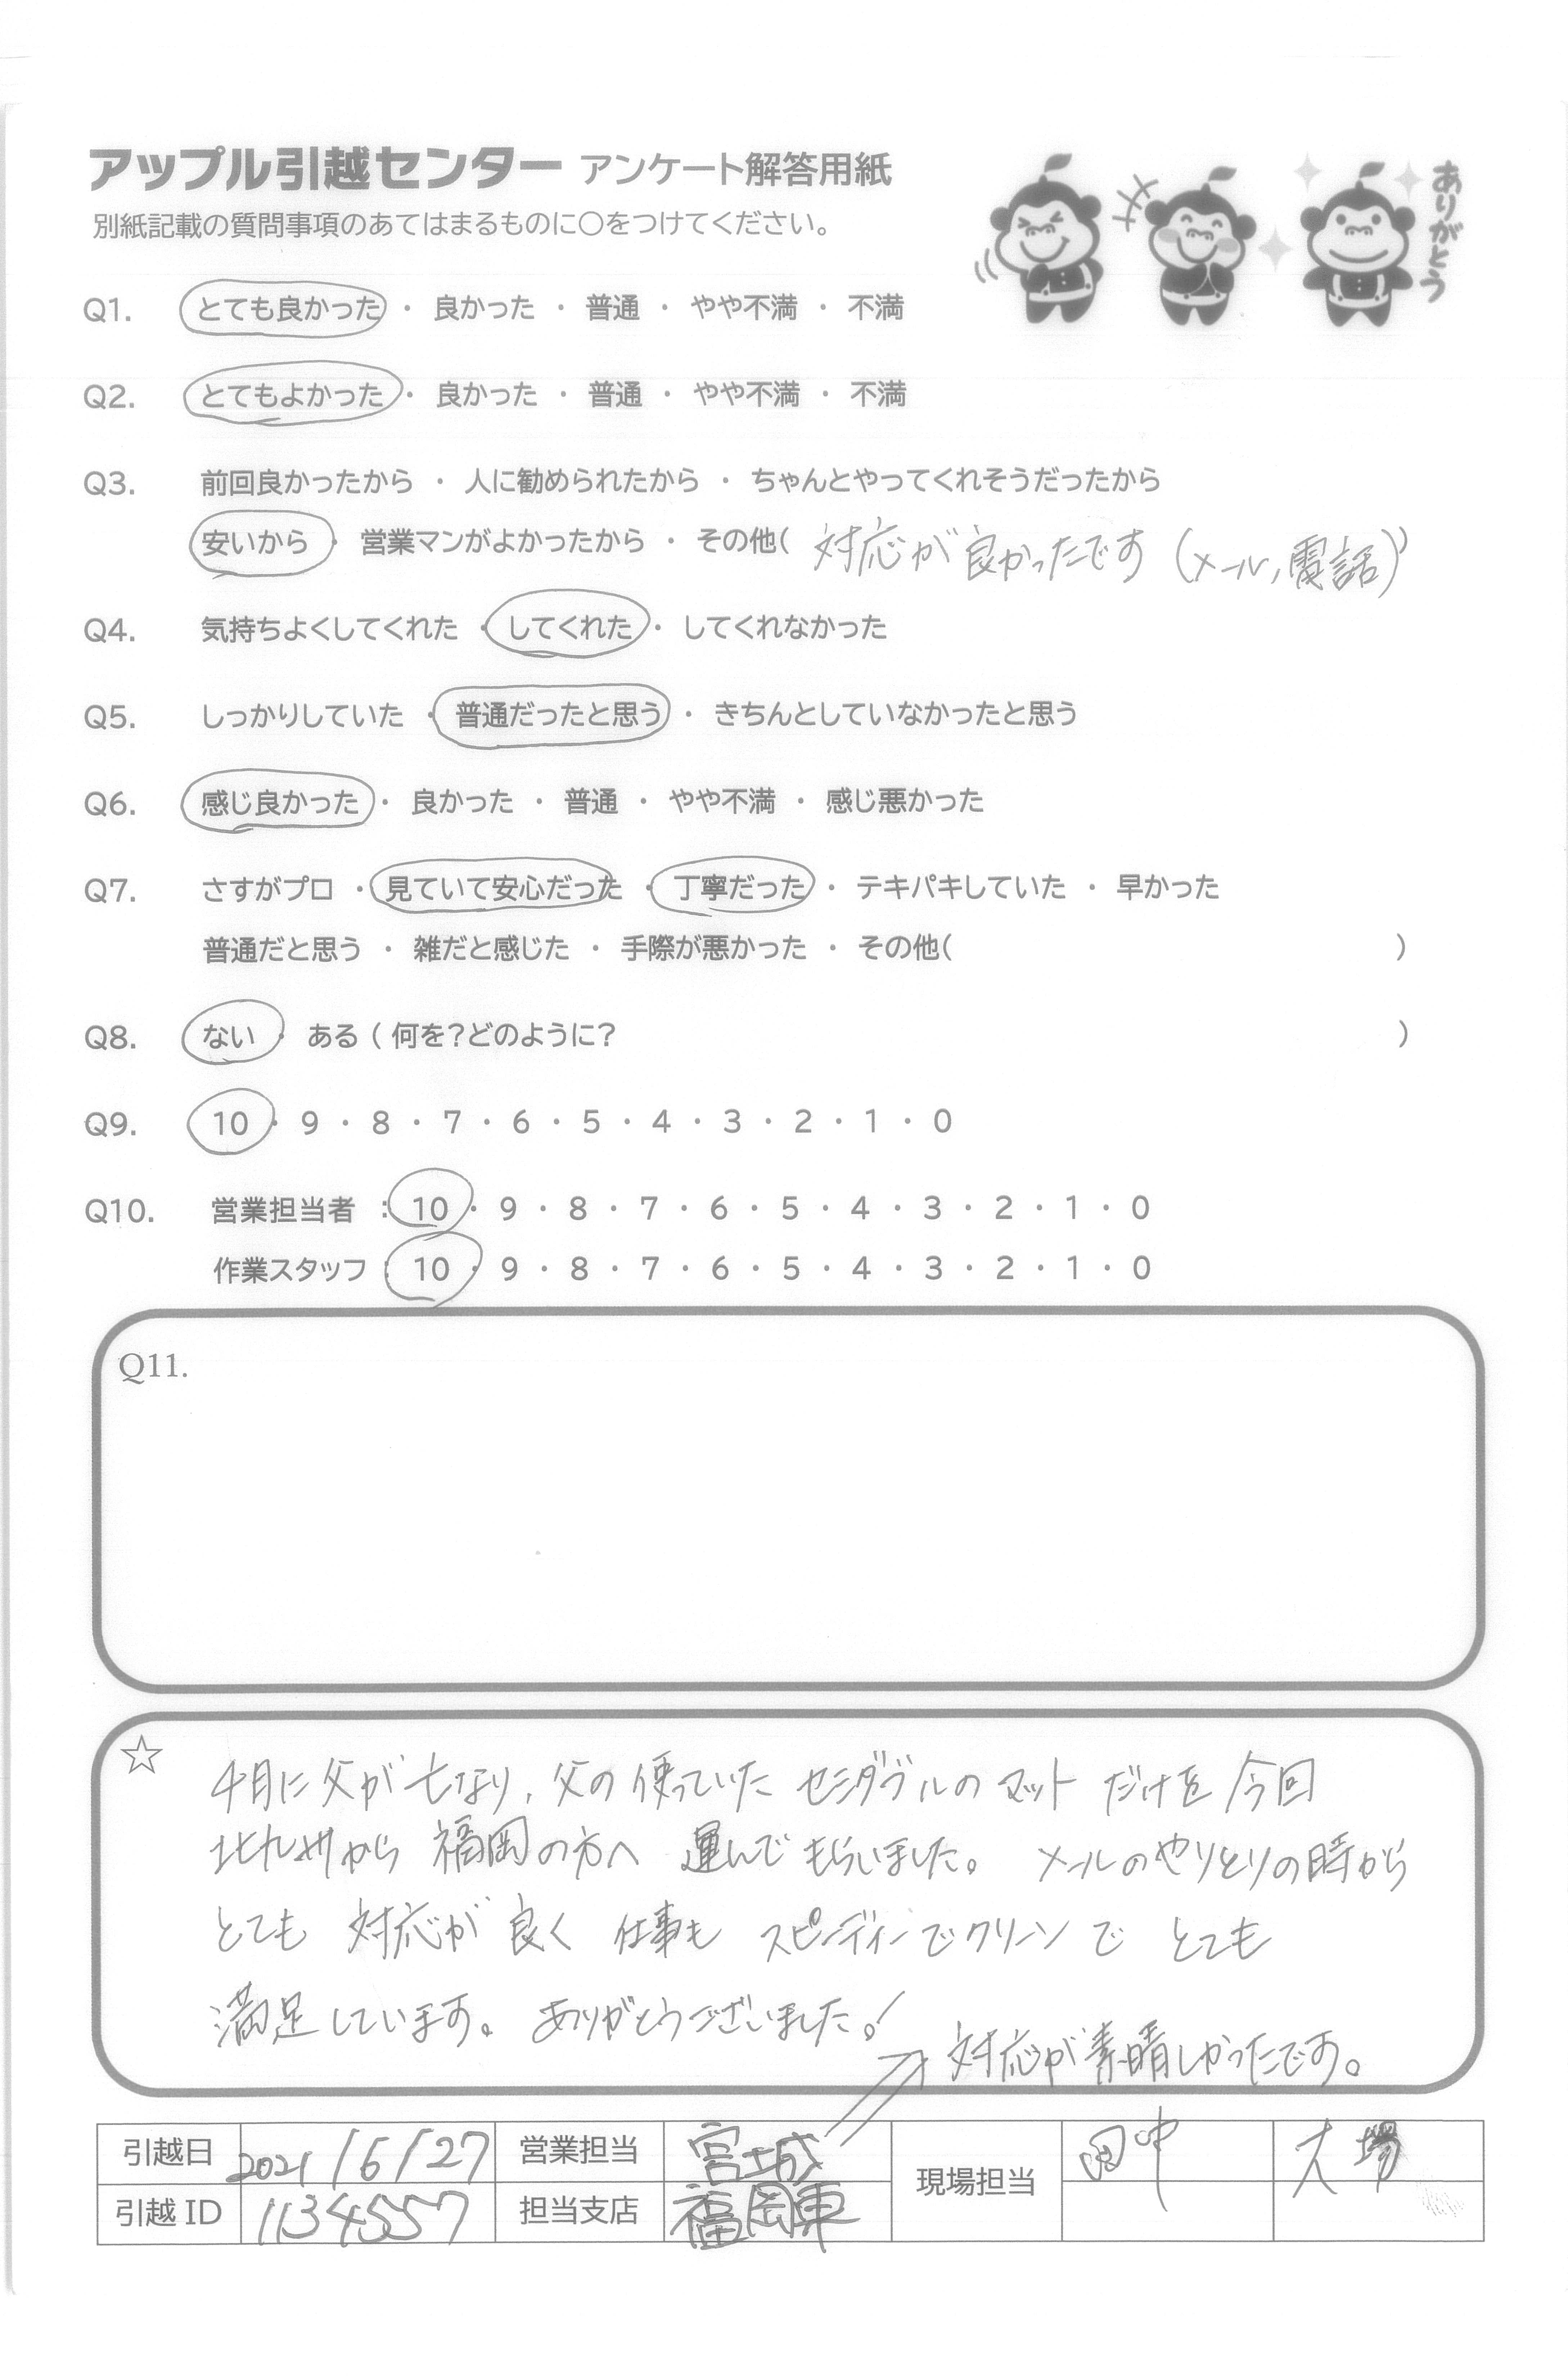 アップル引越センター アンケート解答用紙
別紙記載の質問事項のあてはまるものに○をつけてください。
ありがとう
Q1. とても良かった ・ 良かった ・ 普通 ・ やや不満 ・ 不満
Q2. とてもよかった ・ 良かった ・ 普通 ・ やや不満 ・ 不満
Q3. 前回良かったから ・ 人に勧められたから ・ ちゃんとやってくれそうだったから
安いから ・ 営業マンがよかったから ・ その他( 対応が良かったです (メール,電話))
Q4. 気持ちよくしてくれた ・ してくれた ・ してくれなかった
Q5. しっかりしていた ・ 普通だったと思う ・ きちんとしていなかったと思う
Q6. 感じ良かった ・ 良かった ・ 普通 ・ やや不満 ・ 感じ悪かった
Q7. さすがプロ ・ 見ていて安心だった ・ 丁寧だった ・ テキパキしていた ・ 早かった
普通だと思う ・ 雑だと感じた ・ 手際が悪かった ・ その他( )
Q8. ない ・ ある ( 何を?どのように? )
Q9. 10 ・ 9 ・ 8 ・ 7 ・ 6 ・ 5 ・ 4 ・ 3 ・ 2 ・ 1 ・ 0
Q10. 営業担当者 : 10 ・ 9 ・ 8 ・ 7 ・ 6 ・ 5 ・ 4 ・ 3 ・ 2 ・ 1 ・ 0
作業スタッフ : 10 ・ 9 ・ 8 ・ 7 ・ 6 ・ 5 ・ 4 ・ 3 ・ 2 ・ 1 ・ 0
Q11.
☆ 4月に父が亡なり、父の使っていた セミダブルのマット だけを今回
北九州から 福岡の方へ 運んでもらいました。 メールのやりとりの時から
とても 対応が良く 仕事も スピーディーでクリーンで とても
満足しています。 ありがとうございました!
対応が素晴しかったです。
引越日 2021/6/27 営業担当 宮城 現場担当 田中 大場
引越ID 1134557 担当支店 福岡東